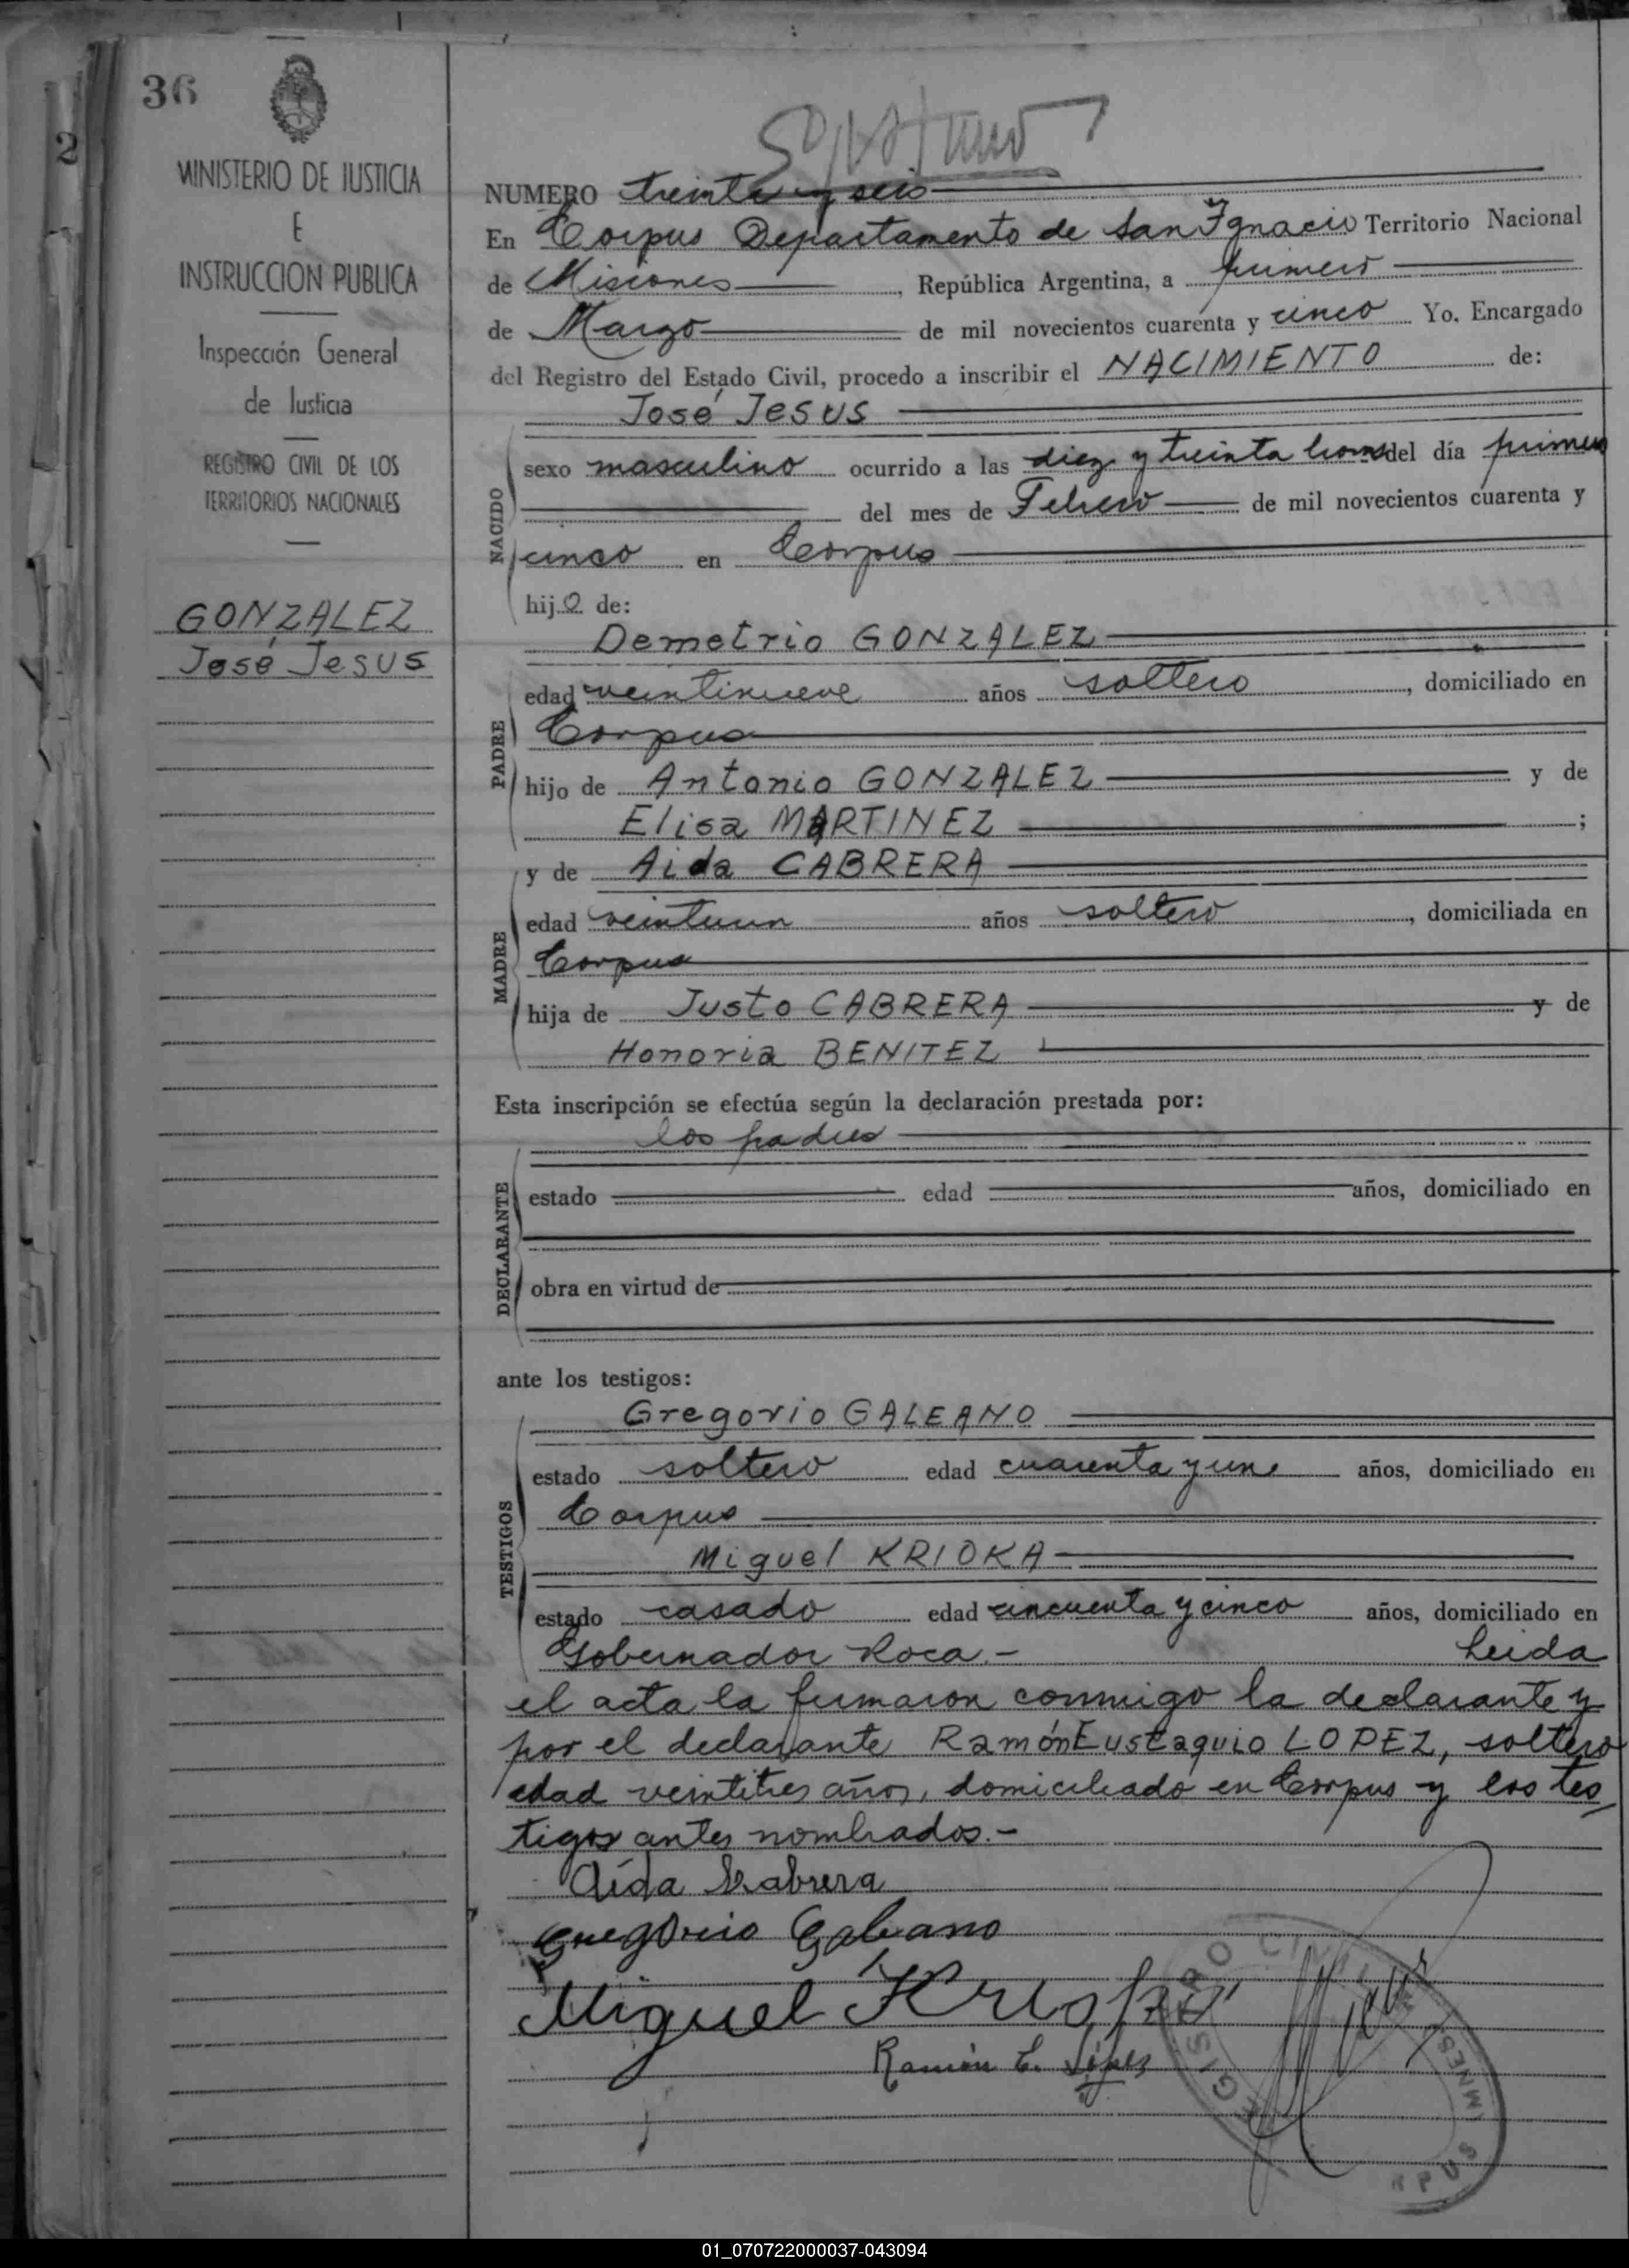 36
2
MINISTERIO DE JUSTICIA
E
INSTRUCCION PUBLICA
Inspección General
de Justicia
REGISTRO CIVIL DE LOS
TERRITORIOS NACIONALES
GONZALEZ
José Jesus
NUMERO treinta y seis
En Corpus Departamento de San Ignacio Territorio Nacional
de Misiones, República Argentina, a primero
de Marzo de mil novecientos cuarenta y cinco Yo, Encargado
del Registro del Estado Civil, procedo a inscribir el NACIMIENTO de:
José Jesus
NACIDO
sexo masculino ocurrido a las diez y treinta horas del día primero
del mes de Febrero de mil novecientos cuarenta y
cinco en Corpus
hijo de:
Demetrio GONZALEZ
PADRE
edad veintinueve años soltero, domiciliado en
Corpus
hijo de Antonio GONZALEZ y de
Elisa MARTINEZ;
y de Aida CABRERA
MADRE
edad veintiun años soltero, domiciliada en
Corpus
hija de Justo CABRERA y de
Honoria BENITEZ
Esta inscripción se efectúa según la declaración prestada por:
los padres
DECLARANTE
estado edad años, domiciliado en
obra en virtud de
ante los testigos:
Gregorio GALEANO
TESTIGOS
estado soltero edad cuarenta y un años, domiciliado en
Corpus
Miguel KRIOKA
estado casado edad cincuenta y cinco años, domiciliado en
Gobernador Roca.- Leida
el acta la firmaron conmigo la declarante y
por el declarante Ramón Eustaquio LOPEZ, soltero
edad veintitres años, domiciliado en Corpus y los tes
tigos antes nombrados.-
Aída Cabrera
Gregorio Galeano
Miguel
Ramón E. López
01_070722000037-043094